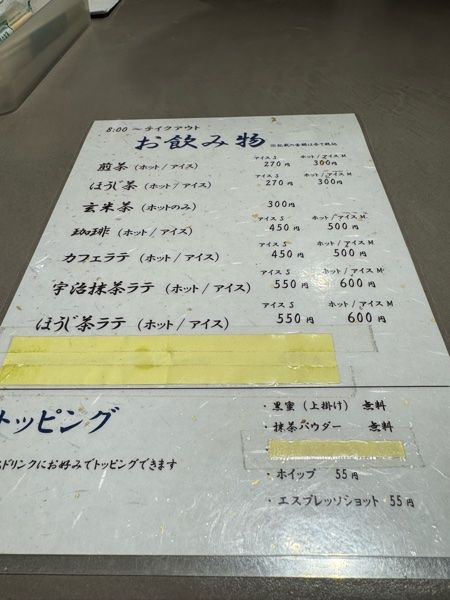 8:00 ～テイクアウト
お飲み物 ※記載の金額は全て税込
煎茶 (ホット / アイス) アイス S 270 円 ホット / アイス M 300円
ほうじ茶 (ホット / アイス) アイス S 270 円 ホット / アイス M 300円
玄米茶 (ホットのみ) 300円
珈琲 (ホット / アイス) アイス S 450 円 ホット / アイス M 500 円
カフェラテ (ホット / アイス) アイス S 450 円 ホット / アイス M 500 円
宇治抹茶ラテ (ホット / アイス) アイス S 550 円 ホット / アイス M 600 円
ほうじ茶ラテ (ホット / アイス) アイス S 550 円 ホット / アイス M 600 円
トッピング
ドリンクにお好みでトッピングできます
・黒蜜 (上掛け) 無料
・抹茶パウダー 無料
・ホイップ 55円
・エスプレッソショット 55円